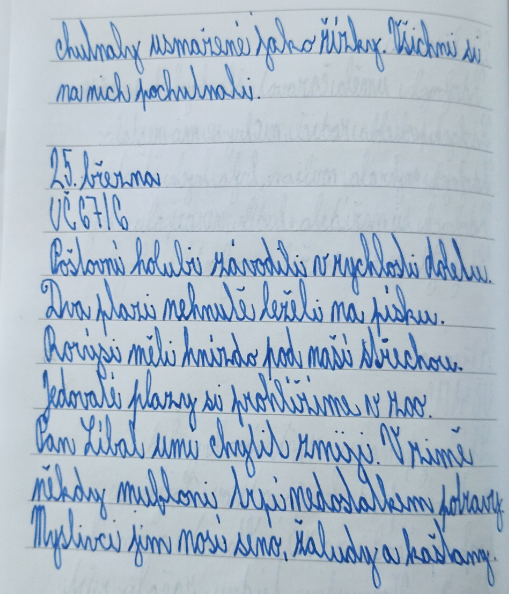 chutnaly usmažené jako řízky. Všichni si
na nich pochutnali.
25. března
UČ 67/6
Poštovní holubi závodili v rychlosti doletu.
Dva plazi nehnutě leželi na písku.
Rorýsi měli hnízdo pod naší střechou.
Jedovaté plazy si prohlížíme v zoo.
Pan Líbal umí chytit zmiji. V zimě
někdy mufloni trpí nedostatkem potravy.
Myslivci jim nosí seno, žaludy a kaštany.